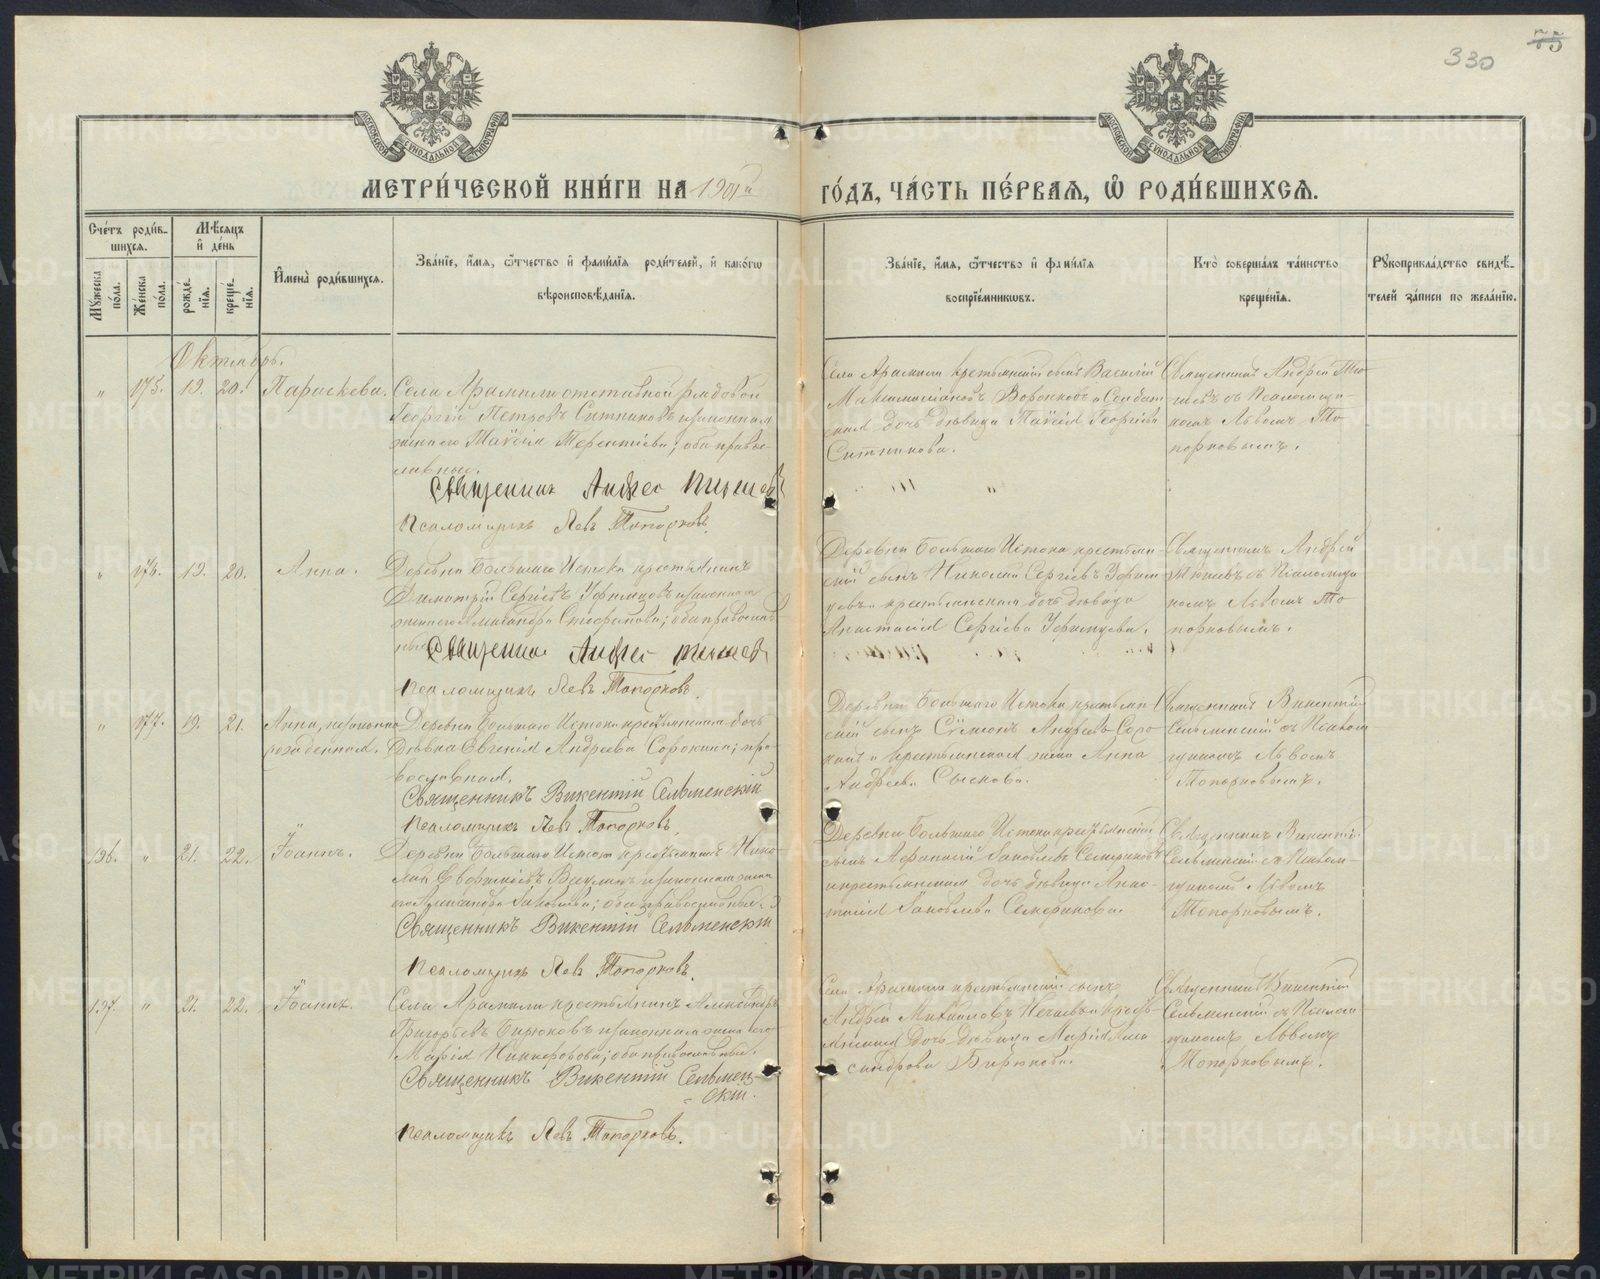 330
75
МОСКОВСКОЙ СѴНОДАЛЬНОЙ ТИПОГРАФІИ
МОСКОВСКОЙ СѴНОДАЛЬНОЙ ТИПОГРАФІИ
МЕТРИ́ЧЕСКОЙ КНИ́ГИ НА 1901й
ГО́ДЪ, ЧА́СТЬ ПЕ́РВАЯ, Ѽ РОДИ́ВШИХСЯ.
Сче́тъ роди́вшихся.
Мꙋ́жеска по́ла.
Же́нска по́ла.
Мѣ́сяцъ и҆ де́нь
рожде́нїя.
креще́нїя.
И҆мена̀ роди́вшихся.
Зва́нїе, и҆́мя, ѻ҆́тчество и҆ фами́лїя роди́телей, и҆ како́гѡ
вѣроисповѣ́данїя.
Зва́нїе, и҆́мя, ѻ҆́тчество и҆ фами́лїя
воспрїе́мникѡвъ.
Кто̀ соверша́лъ та́инство
креще́нїя.
Рꙋкоприкла́дство свидѣ́-
телей за́писи по жела́нїю.
Октябрь.
" 175. 19. 20. Параскева.
Села Арамили отставной рядовой
Георгій Петровъ Ситниковъ и законная
жена его Таисія Терентіева; оба право-
славные.
Священникъ Андрей
Псаломщикъ Левъ Топорковъ.
Села Арамили крестьянскій сынъ Василій
Воронковъ и Солдат-
ская дочь девица Таисія Георгіева
Ситникова.
Священникъ Андрей
съ Псаломщи-
комъ Львомъ То-
порковымъ.
" 176. 19. 20. Анна.
Деревни Большаго Истока крестьянинъ
Димитрій Сергіевъ Уфимцевъ и законная
жена его Александра Стефанова; оба православ-
ные.
Священникъ Андрей
Псаломщикъ Левъ Топорковъ.
Деревни Большаго Истока крестьян-
скій сынъ Николай Сергіевъ Уфим-
цевъ и крестьянская дочь девица
Анастасія Сергіева Уфимцева.
Священникъ Андрей
съ Псаломщи-
комъ Львомъ То-
порковымъ.
" 177. 19. 21. Анна, незаконно
рожденная.
Деревни Большаго Истока крестьянская дочь
Девка Евгенія Андреева Сорокина; пра-
вославная.
Священникъ Викентій Сельменскій
Псаломщикъ Левъ Топорковъ.
Деревни Большаго Истока крестьян-
скій сынъ Сѵмеонъ Андреевъ Соро-
кинъ и крестьянская жена Анна
Андреева Сыскова.
Священникъ Викентій
Сельменскій съ Псалом-
щикомъ Львомъ
Топорковымъ.
196. " 21. 22. Іоаннъ.
Деревни Большаго Истока крестьянинъ Нико-
лай и законная жена
его Александра Яковлева; оба православные.
Священникъ Викентій Сельменскій
Псаломщикъ Левъ Топорковъ.
Деревни Большаго Истока крестьянскій
сынъ Афанасій Яковлевъ Семериковъ
и крестьянская дочь девица Анас-
тасія Яковлева Семерикова.
Священникъ Викентій
Сельменскій съ Псалом-
щикомъ Львомъ
Топорковымъ.
197. " 21. 22. Іоаннъ.
Села Арамили крестьянинъ Александръ
Григорьевъ Бирюковъ и законная жена его
Марія Никифорова; оба православные.
Священникъ Викентій Сельмен-
скій.
Псаломщикъ Левъ Топорковъ.
Села Арамили крестьянскій сынъ
Андрей Михайловъ и кресть-
янская дочь девица Марія Алек-
сандрова Бирюкова.
Священникъ Викентій
Сельменскій съ Псалом-
щикомъ Львомъ
Топорковымъ.
METRIKI.GASO-URAL.RU